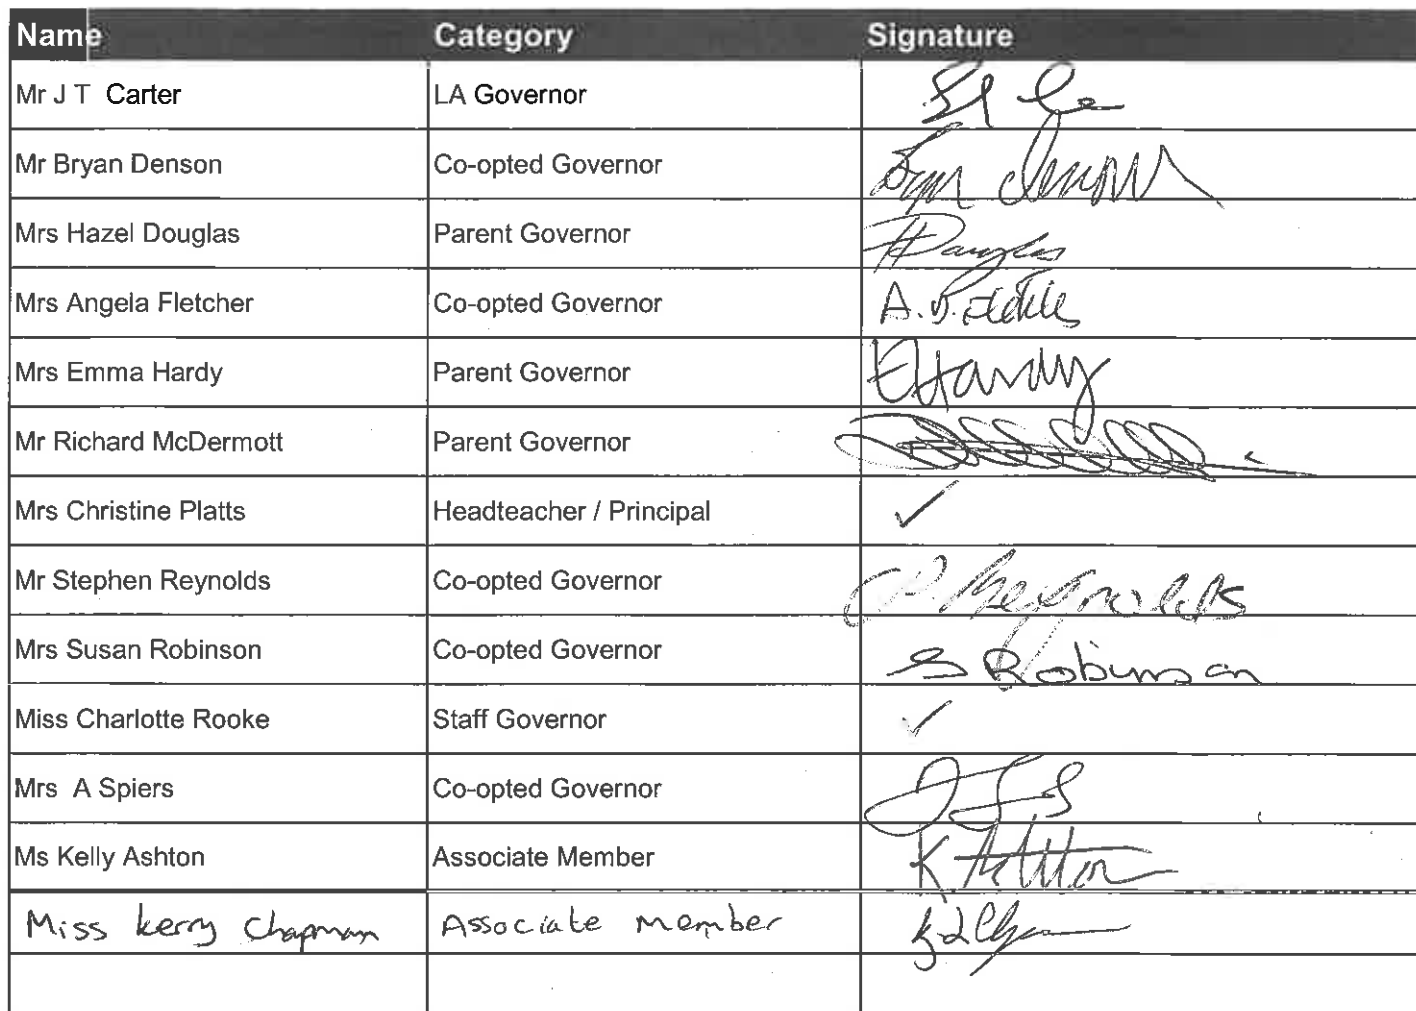 Name Category Signature
Mr J T Carter LA Governor
Mr Bryan Denson Co-opted Governor
Mrs Hazel Douglas Parent Governor HDouglas
Mrs Angela Fletcher Co-opted Governor
Mrs Emma Hardy Parent Governor EHardy
Mr Richard McDermott Parent Governor
Mrs Christine Platts Headteacher / Principal ✓
Mr Stephen Reynolds Co-opted Governor Reynolds
Mrs Susan Robinson Co-opted Governor S Robinson
Miss Charlotte Rooke Staff Governor ✓
Mrs A Spiers Co-opted Governor
Ms Kelly Ashton Associate Member K Ashton
Miss kerry Chapman Associate Member